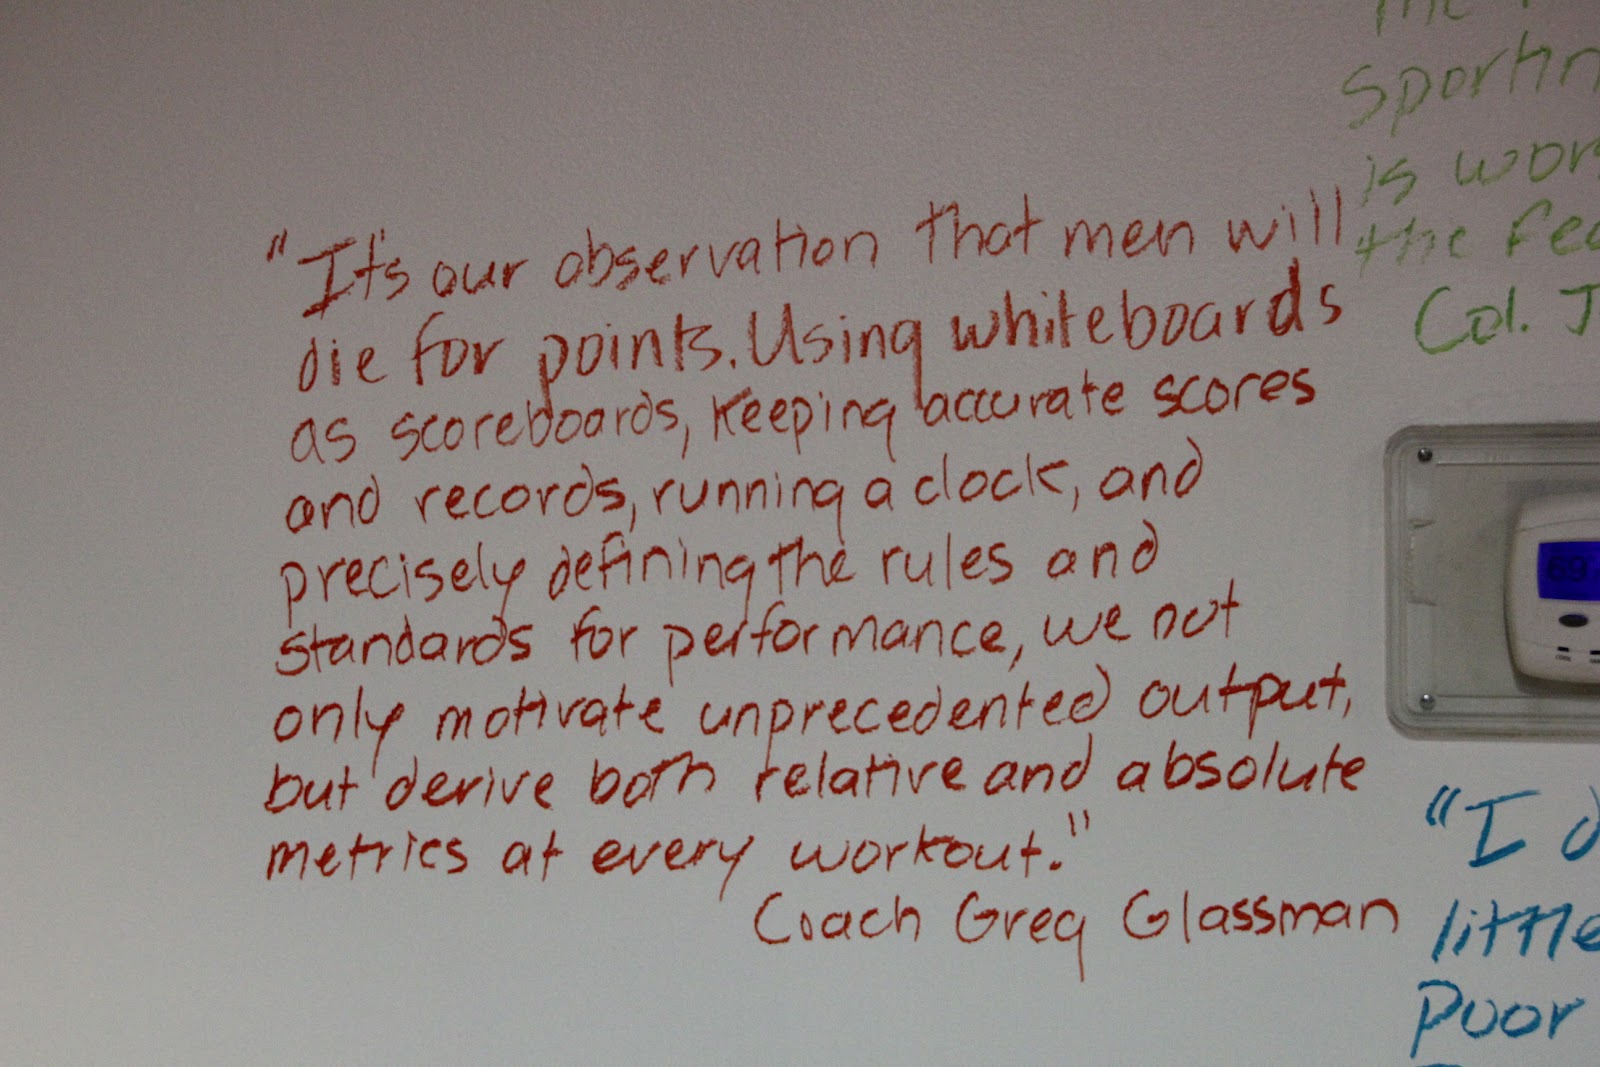 "It's our observation that men will
die for points. Using whiteboards
as scoreboards, keeping accurate scores
and records, running a clock, and
precisely defining the rules and
standards for performance, we not
only motivate unprecedented output,
but derive both relative and absolute
metrics at every workout."
Coach Greg Glassman
The
Sportin
is wor
the fee
Col. J
69
"I d
little
Poor